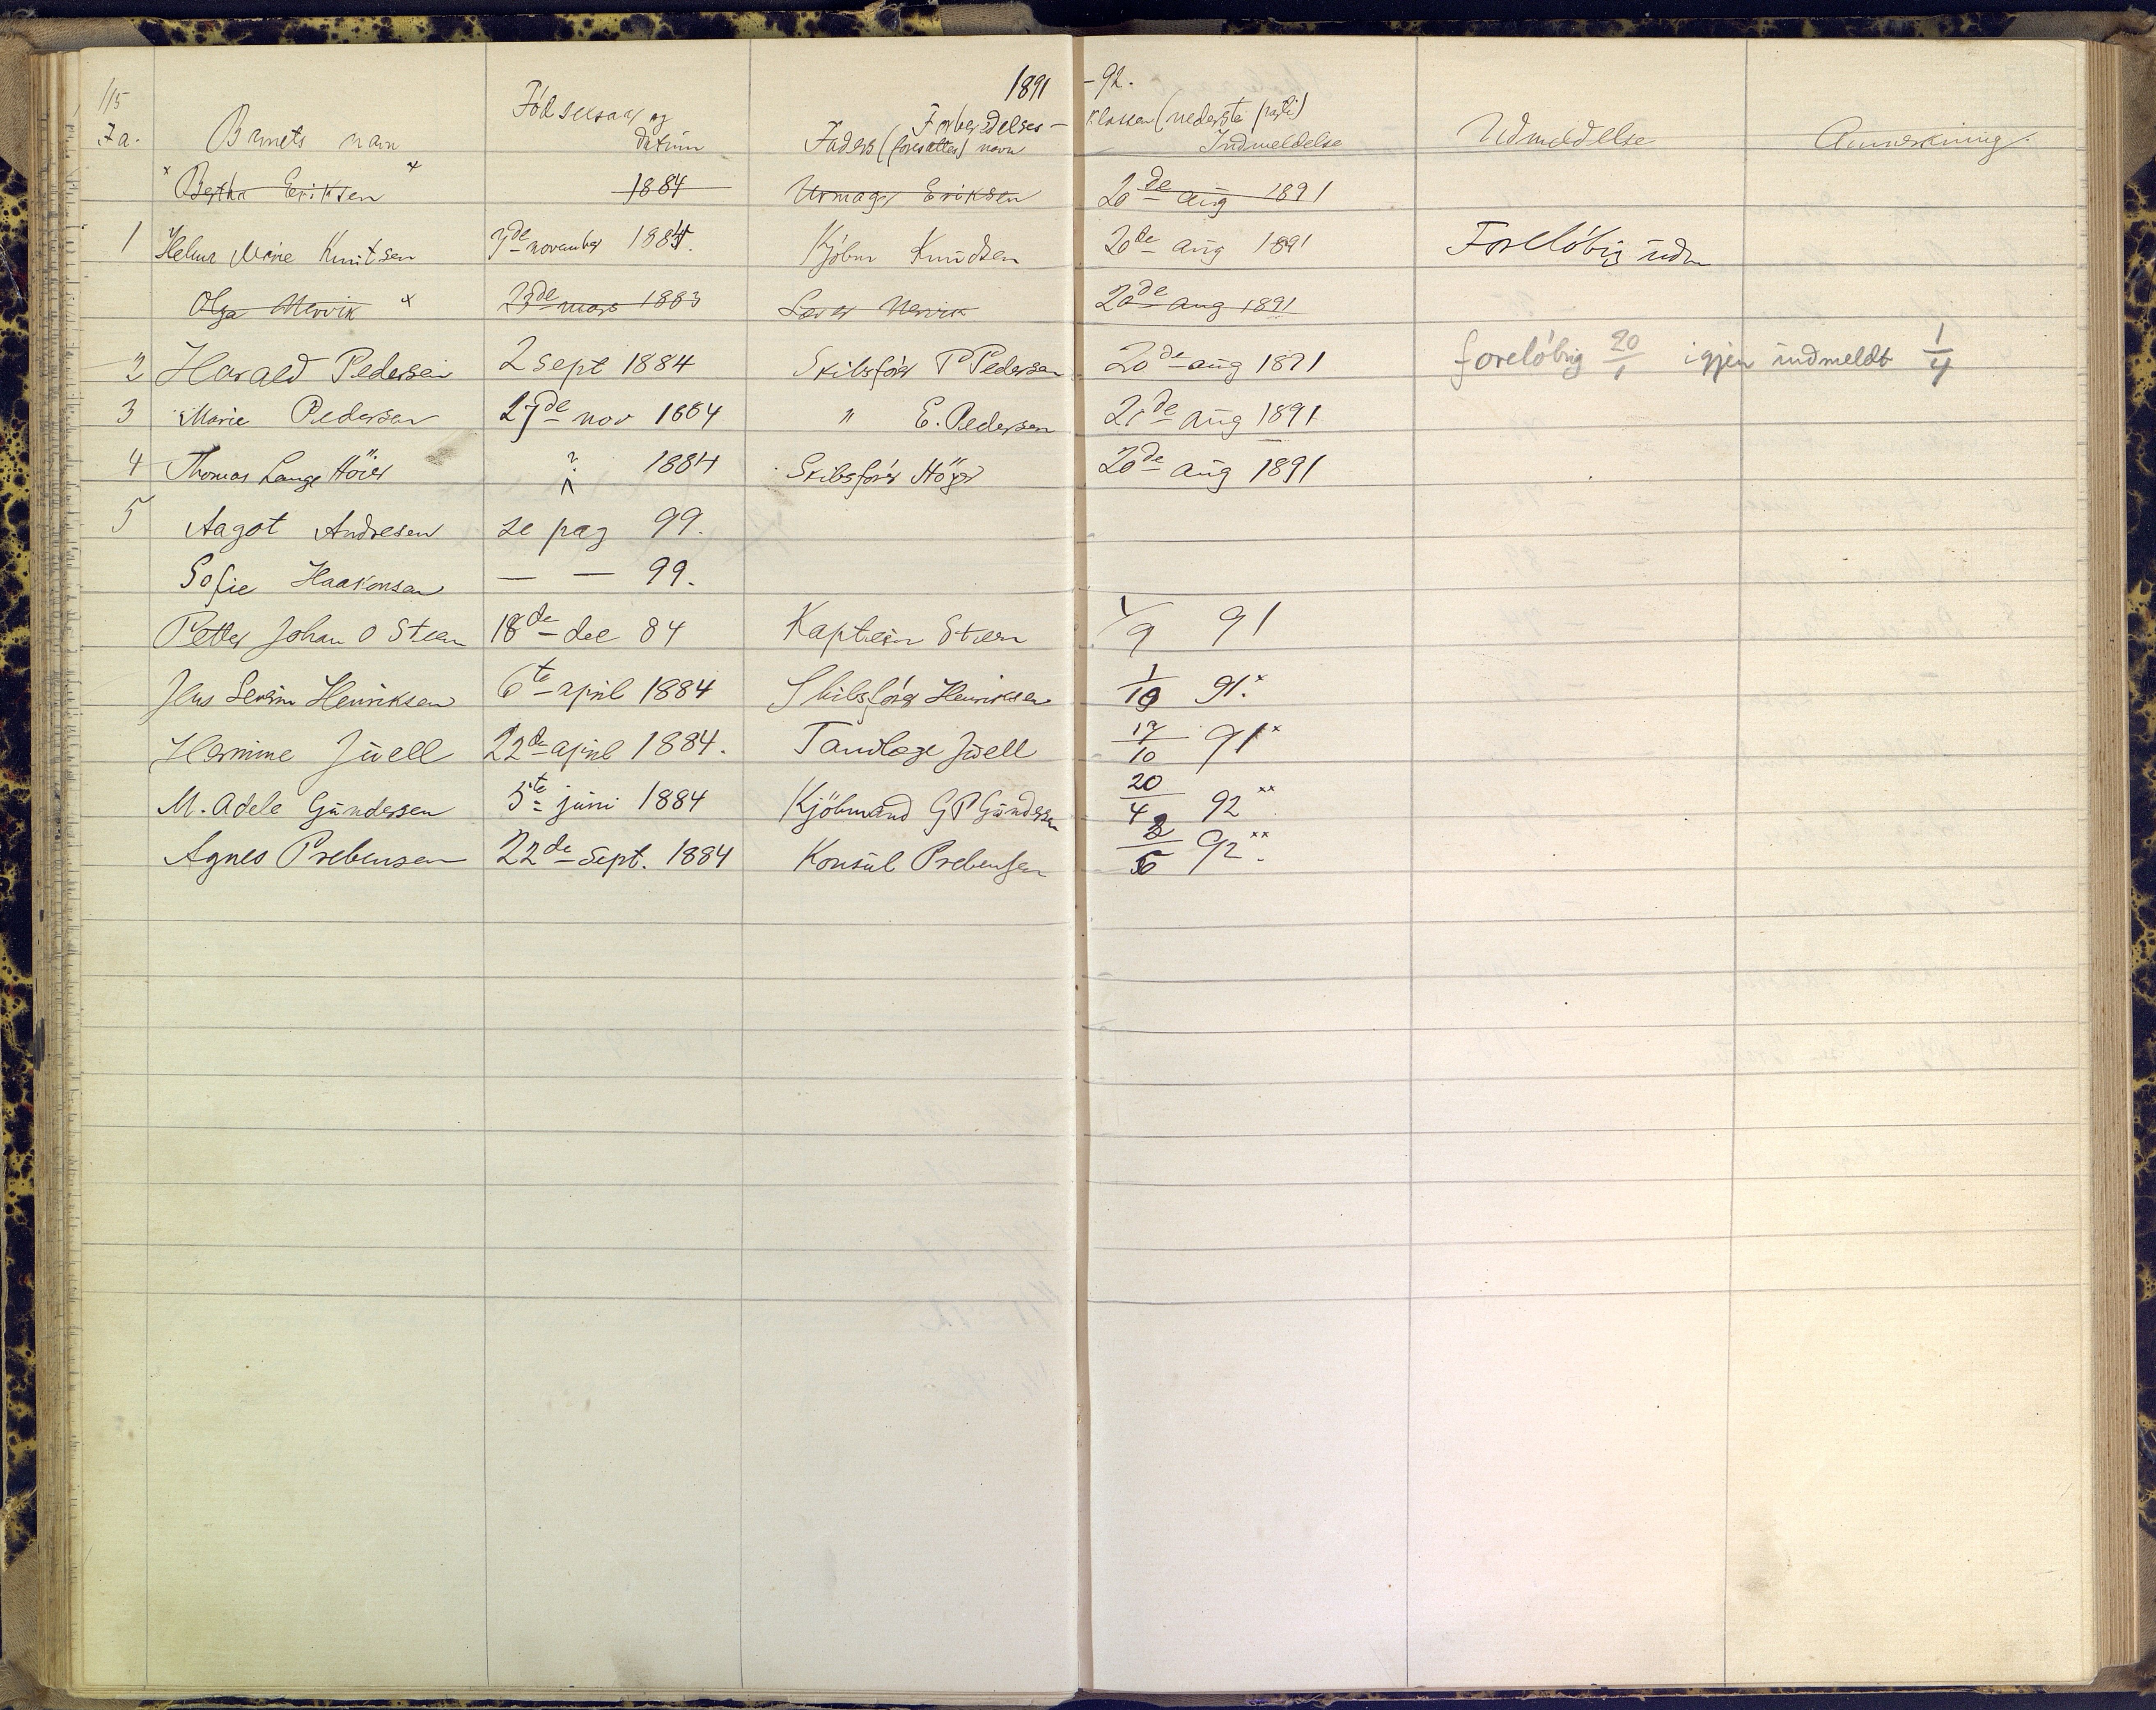 1891 -92.
115
Forberedelses- klassen (nederste parti)
Za. Barnets navn Födselsaar og datum Faders (foresattes) navn Indmeldelse Udmeldelse Anmerkning.
× Bertha Eriksen × 1884 Urmager Eriksen 20de aug 1891
1 Marie Knutsen 7de november 1884. Kjöbm Knudsen 20de aug 1891 Forelöbig udm
Olga × 23de mars 1883 20de aug 1891
2 Harald Pedersen 2 sept 1884 Skibsförer P Pedersen 20de aug 1891 forelöbig 20/1 igjen indmeldt 1/4
3 Marie Pedersen 27de nov 1884 " E. Pedersen 21de aug 1891
4 Thomas Lange Höier ? 1884 Skibsförer Höyer 20de aug 1891
5 Aagot Andresen se pag 99.
Sofie Haakonsen — — 99.
Petter Johan O Steen 18de dec 84 Kaptein Steen 1/9 91
Jens Severin Henriksen 6te april 1884 Skibsförer Henriksen 1/10 91. ×
Hermine Juell 22de april 1884. Tandlæge Juell 17/10 91 ×
M. Adele Gundersen 5te juni 1884 Kjöbmand G P Gundersen 20/4 92 ××
Agnes Prebensen 22de Sept. 1884 Konsul Prebensen 2/5 92. ××